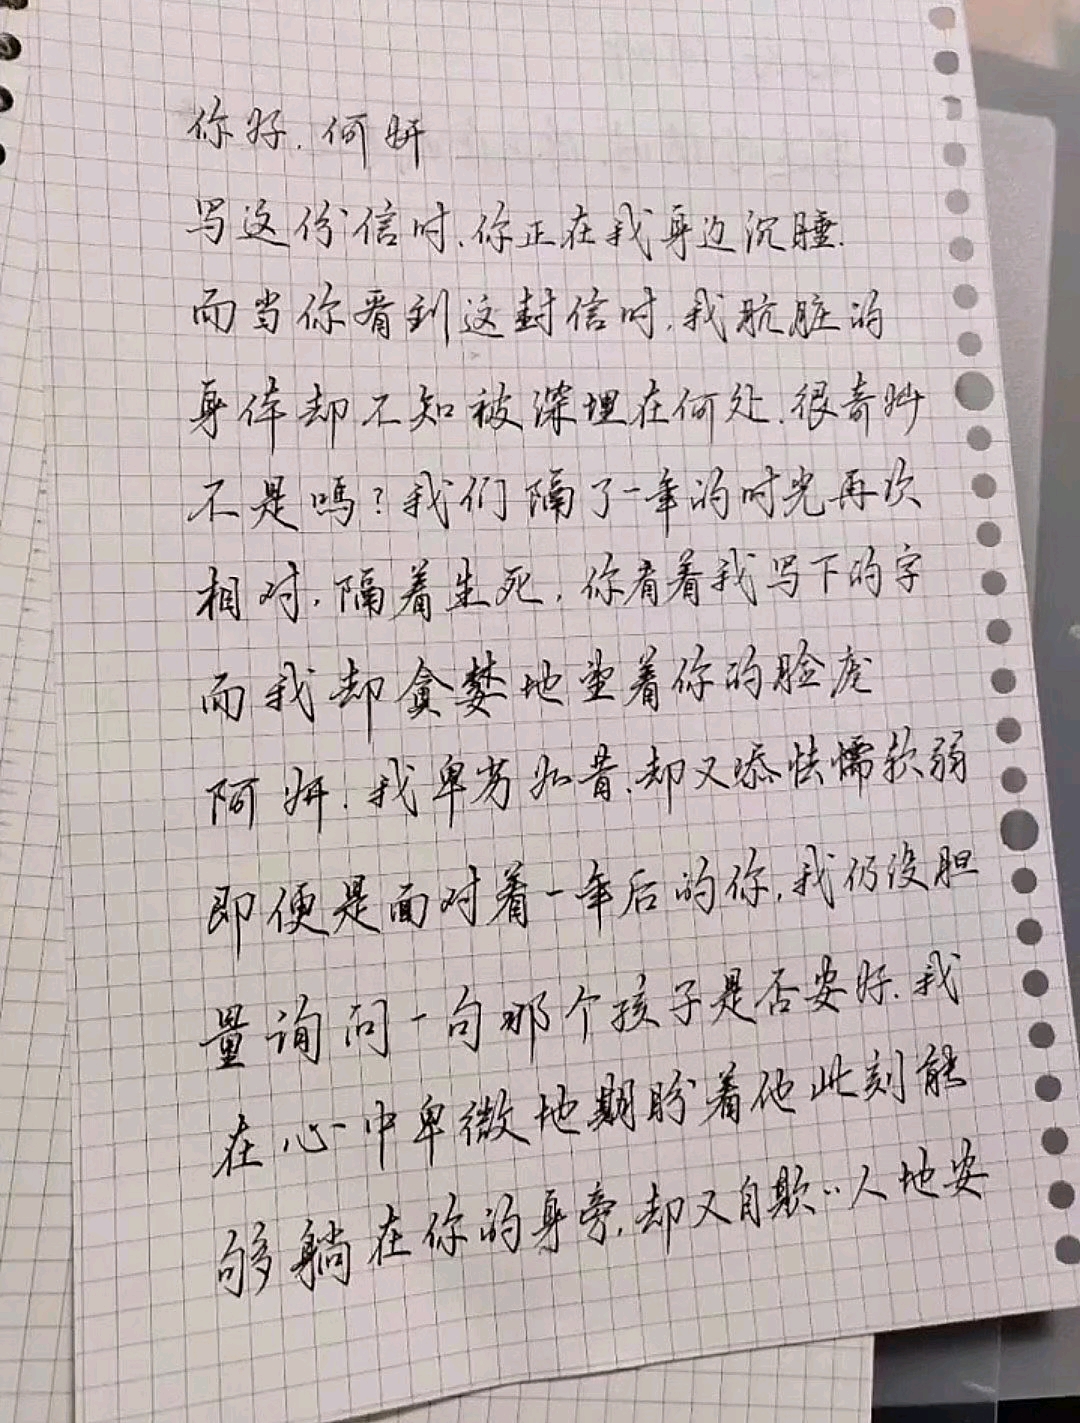 你好,何妍
写这份信时,你正在我身边沉睡.
而当你看到这封信时,我肮脏的
身体却不知被深埋在何处.很奇妙
不是吗?我们隔了一年的时光再次
相对,隔着生死,你看着我写下的字
而我却贪婪地望着你的脸庞
阿妍.我卑劣如昔,却又添怯懦软弱
即便是面对着一年后的你,我仍没胆
量询问一句那个孩子是否安好.我
在心中卑微地期盼着他此刻能
够躺在你的身旁,却又自欺..人地安